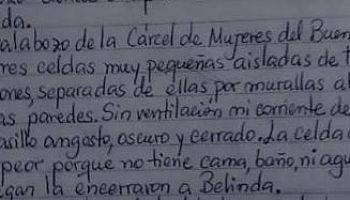 da.
alabozo de la Carcel de Mujeres del Buen
res celdas muy pequeñas aisladas de t
ones, separadas de ellas por murallas al
as paredes. Sin ventilación ni corriente de
asillo angosto, oscuro y cerrado. La celda
peor porque no tiene cama, baño, ni agu
gan la encerraron a Belinda.